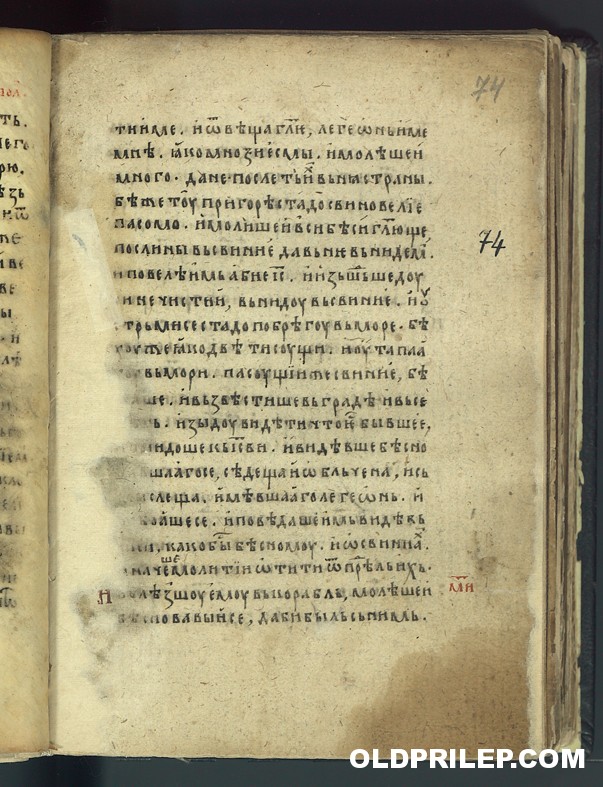 74
ти име. и ѿвѣща глѥ, легеѡнь име
мнѣ. ꙗко мнози есмы. и молѣше и
много. да не послеть их вьнь страны.
бѣ же тоу при горѣ стадо свиноѥ велїе
пасомо. и молише и вси бѣси глюще,
посли ны вь свинїе да вь нѥ вьнидемь.
и повелѣ имь абиѥ іс. и изьшьше доу
си нечистїи, вьнидоу вь свинїе. и оу
стрьми се стадо по брѣгоу вь море. бѣ
хоу же ꙗко двѣ тисоущи. и оутапла
вь мори. пасоущїи же свинїе, бѣ
жаше. и вьзвѣстише вь градѣ и вь се
изыдоу видѣти что ѥ бывшеѥ,
придоше кь ісви. и видѣвше бѣсно
шаго се, сѣдеща и ѡбльчена, и сь
слеща. имѣвшааго легеѡнь. и
боꙗше се. и повѣдаше имь видѣв
како бы бѣсномоу. и ѡ свинїах.
начеше молити и ѡтити ѿ прѣдѣль их.
влѣзшоу емоу вь корабль, молѣше и
бѣсновавыи се, да би быль сь нимь.
74
OLDPRILEP.COM